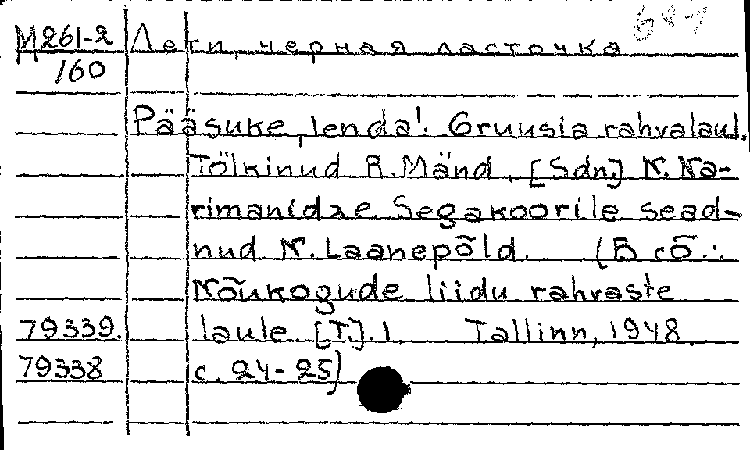 М261-2 Лети, черная ласточка
160
Pääsuke, lenda! Gruusia rahvalaul.
Tõlkinud R. Mänd. [Sdn.] K. Ka-
rimanidze. Segakoorile sead-
nud K. Laanepõld. (В сб.:
Nõukogude liidu rahvaste
79339. laule [T]. 1. Tallinn, 1948.
79338 с. 24-25)